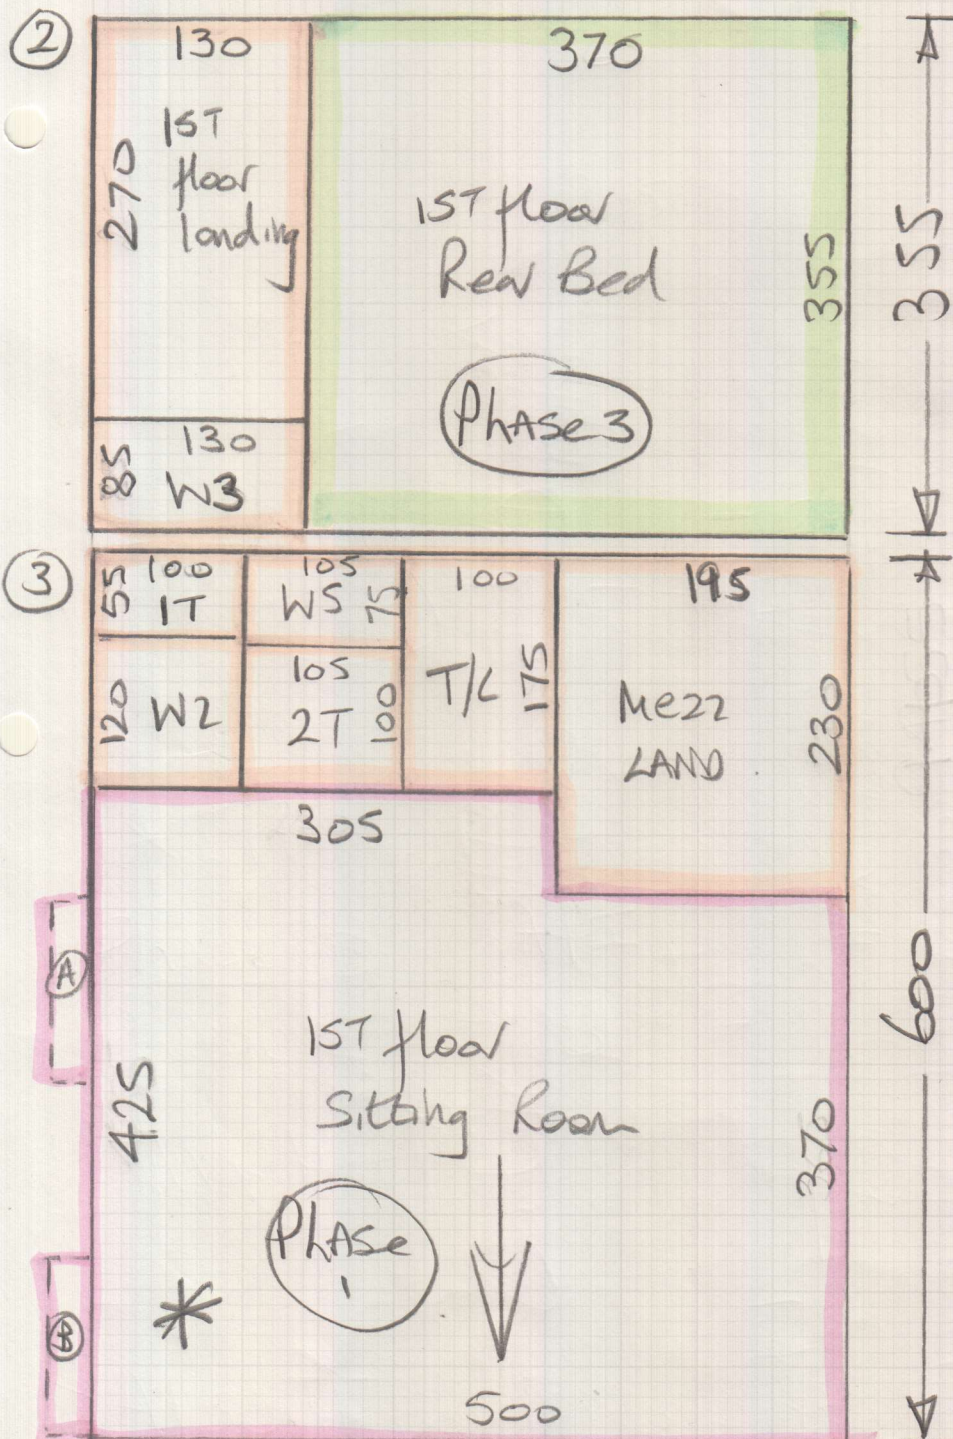 2
130
370
1ST
floor
landing
270
1ST floor
Rear Bed
355
355
Phase 3
130
85
W3
3
55
100
1T
105
W5
75
100
195
120
W2
105
2T
100
T/C
175
Mezz
LAND
230
305
A
1ST floor
Sitting Room
425
370
600
Phase
1
*
B
500